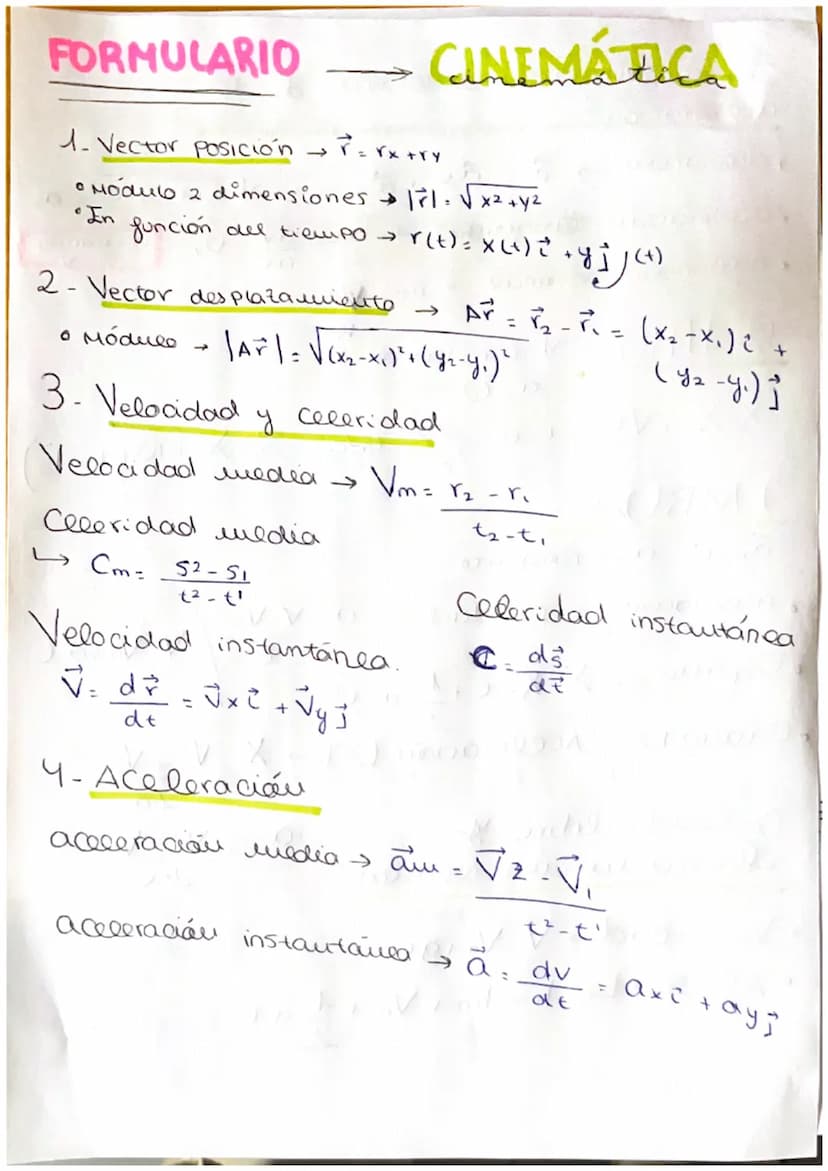 FORMULARIO → CINEMÁTICA
cinemática
1- Vector posición → r⃗ = rx + ry
• Módulo 2 dimensiones → |r⃗| = √x² + y²
• En función del tiempo → r(t) = x(t) i⃗ + y j⃗ (t)
2- Vector desplazamiento → Δr⃗ = r⃗₂ - r⃗₁ = (x₂ - x₁) i⃗ +
(y₂ - y₁) j⃗
• Módulo → |Δr⃗| = √(x₂-x₁)² + (y₂-y₁)²
3- Velocidad y celeridad
Velocidad media → Vm = r₂ - r₁ / t₂ - t₁
Celeridad media
↳ Cm = S2 - S1 / t2 - t1
Celeridad instantánea
C = ds⃗ / dt⃗
Velocidad instantánea.
V⃗ = dr⃗ / dt = V⃗x i⃗ + V⃗y j⃗
4- Aceleración
aceleración media → a⃗m = V⃗2 - V⃗₁ / t² - t¹
aceleración instantánea → a⃗ = dv / dt = ax i⃗ + ay j⃗